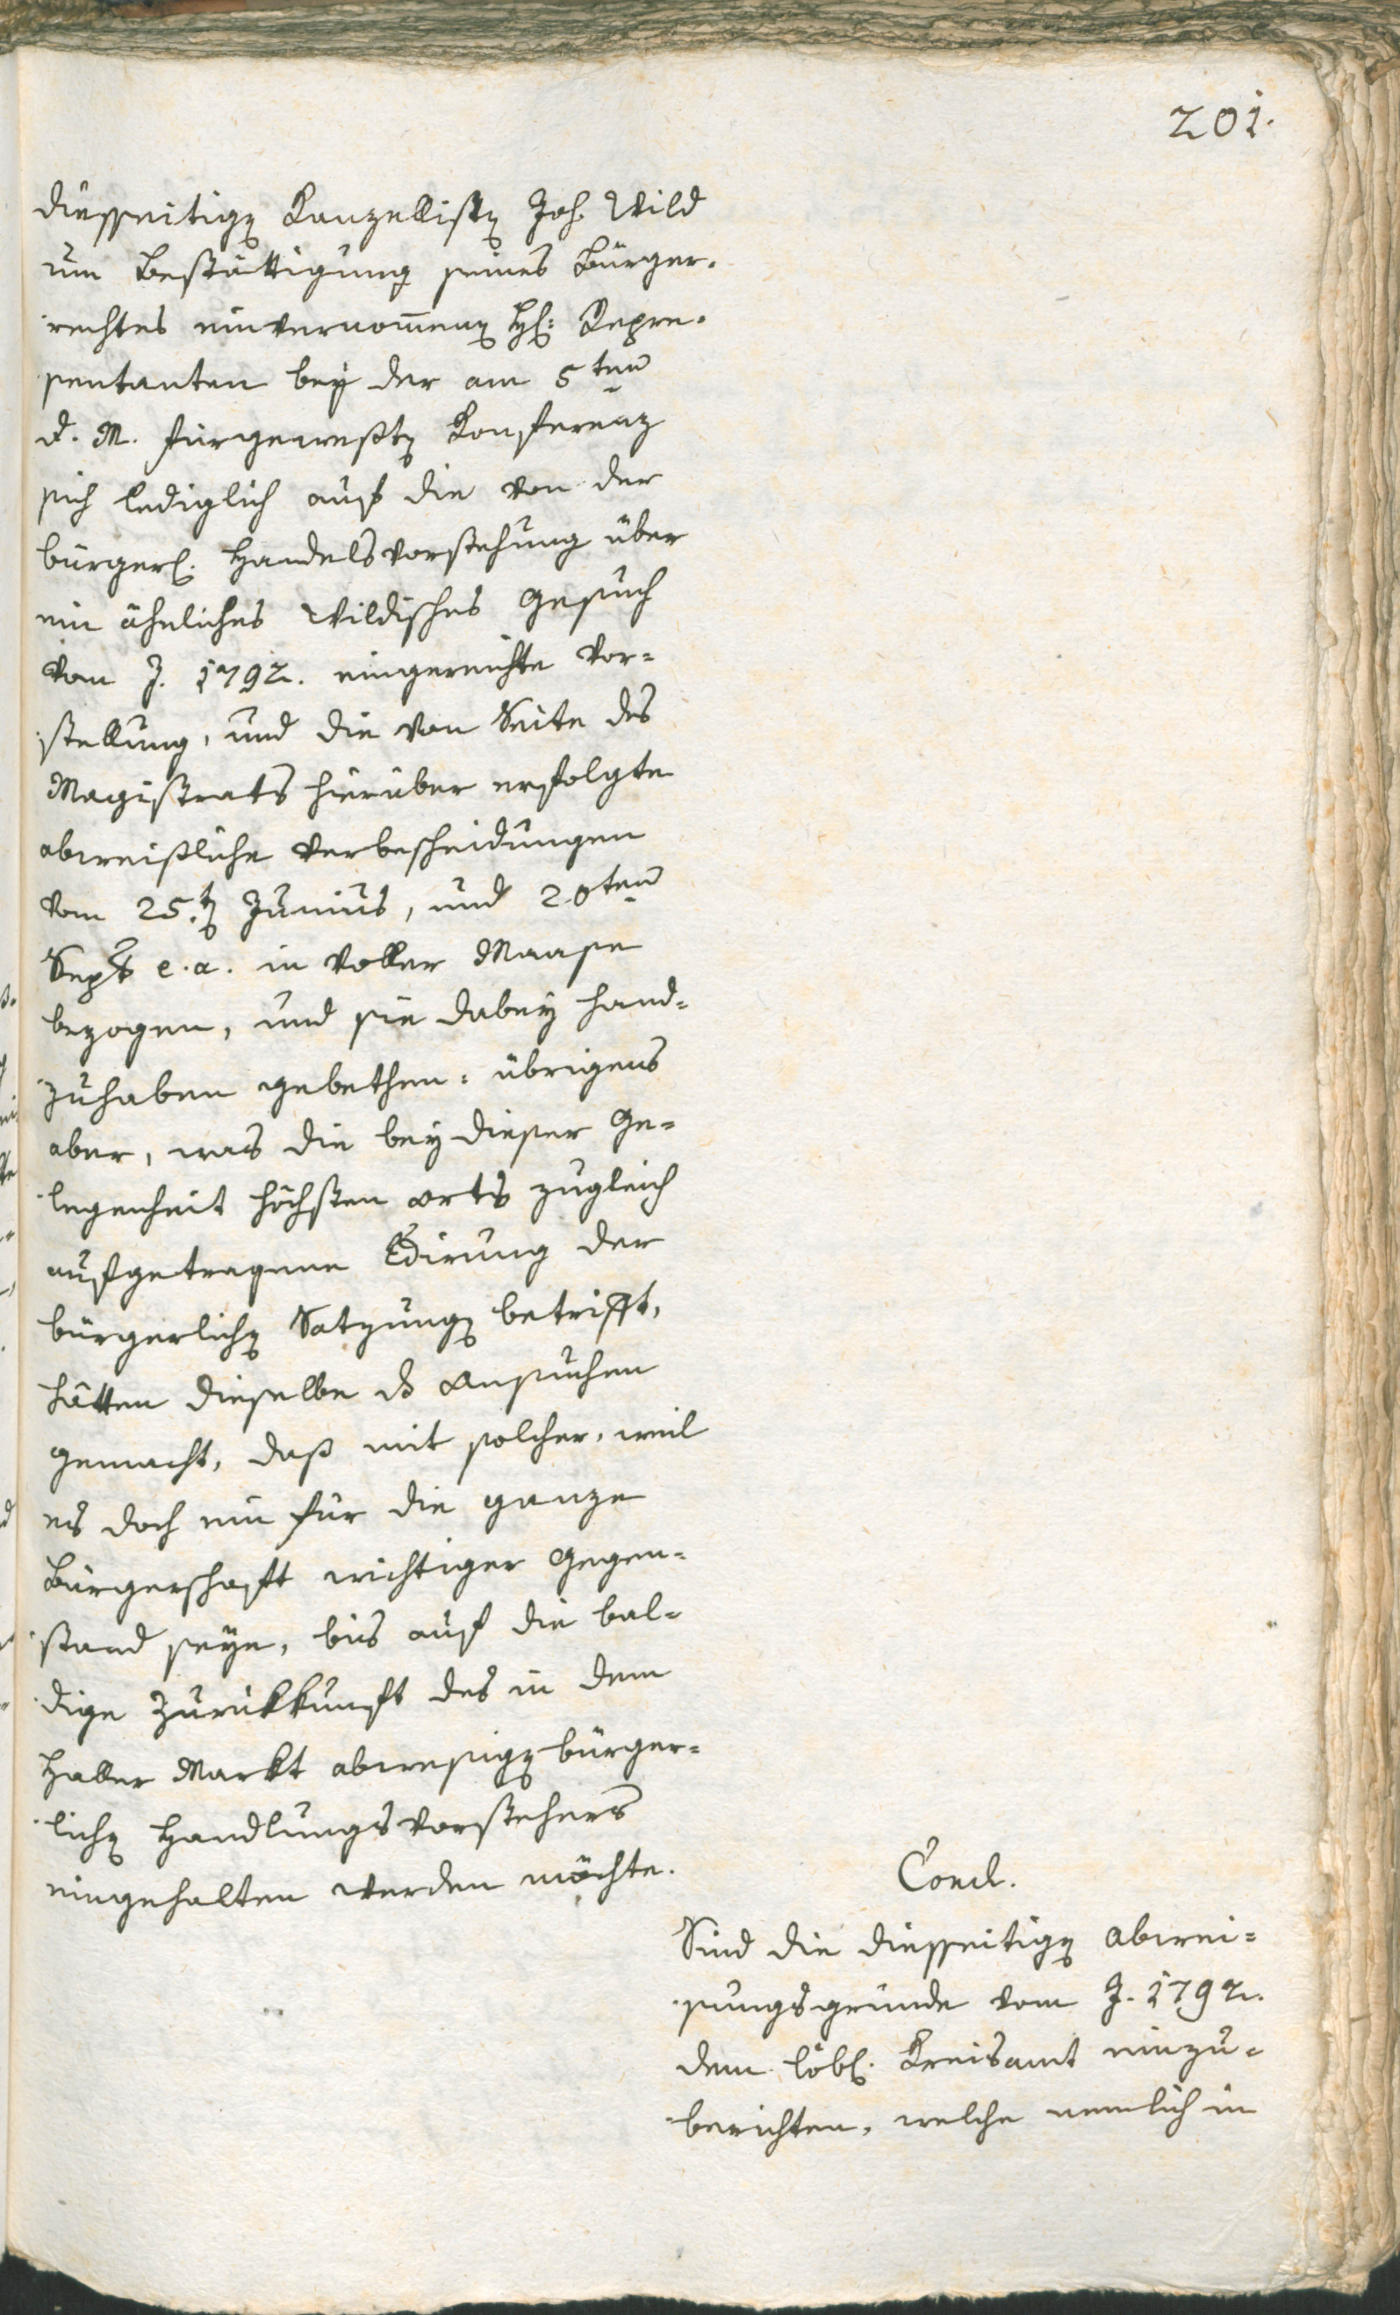 201.
diesseitigen Kanzellisten Joh. Wild
um Bestättigung seines Bürger-
rechtes einvernommenen HH: Repre-
sentanten bey der am 5ten
d. M. fürgewesten Konferenz
sich lediglich auf die von der
bürgerl. Handelsvorstehung über
ein ähnliches Wildisches Gesuch
vom J. 1792. eingereichte Vor-
stellung, und die von Seite des
Magistrats hierüber erfolgte
abweißliche Verbescheidungen
vom 25.ten Junius, und 20ten
Sept e. a. in voller Maase
bezogen, und sie dabey hand-
zuhaben gebethen: übrigens
aber, was die bey dieser Ge-
legenheit höchsten Orts zugleich
aufgetragene Edirung der
bürgerlichen Satzungen betrifft,
hätten dieselbe das Ansuchen
gemacht, daß mit solcher, weil
es doch ein für die ganze
Bürgerschaft wichtiger Gegen-
stand seye, bis auf die bal-
dige Zurükkunft des in dem
Haller Markt abwesigen bürger-
lichen Handlungsvorstehers
eingehalten werden möchte.
Concl.
Sind die diesseitigen Abwei-
sungsgründe vom J. 1792.
dem löbl. Kreisamt einzu-
berichten, welche nemlich in